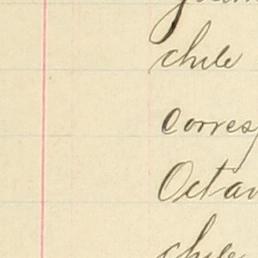 chile
corres
Octav
chile